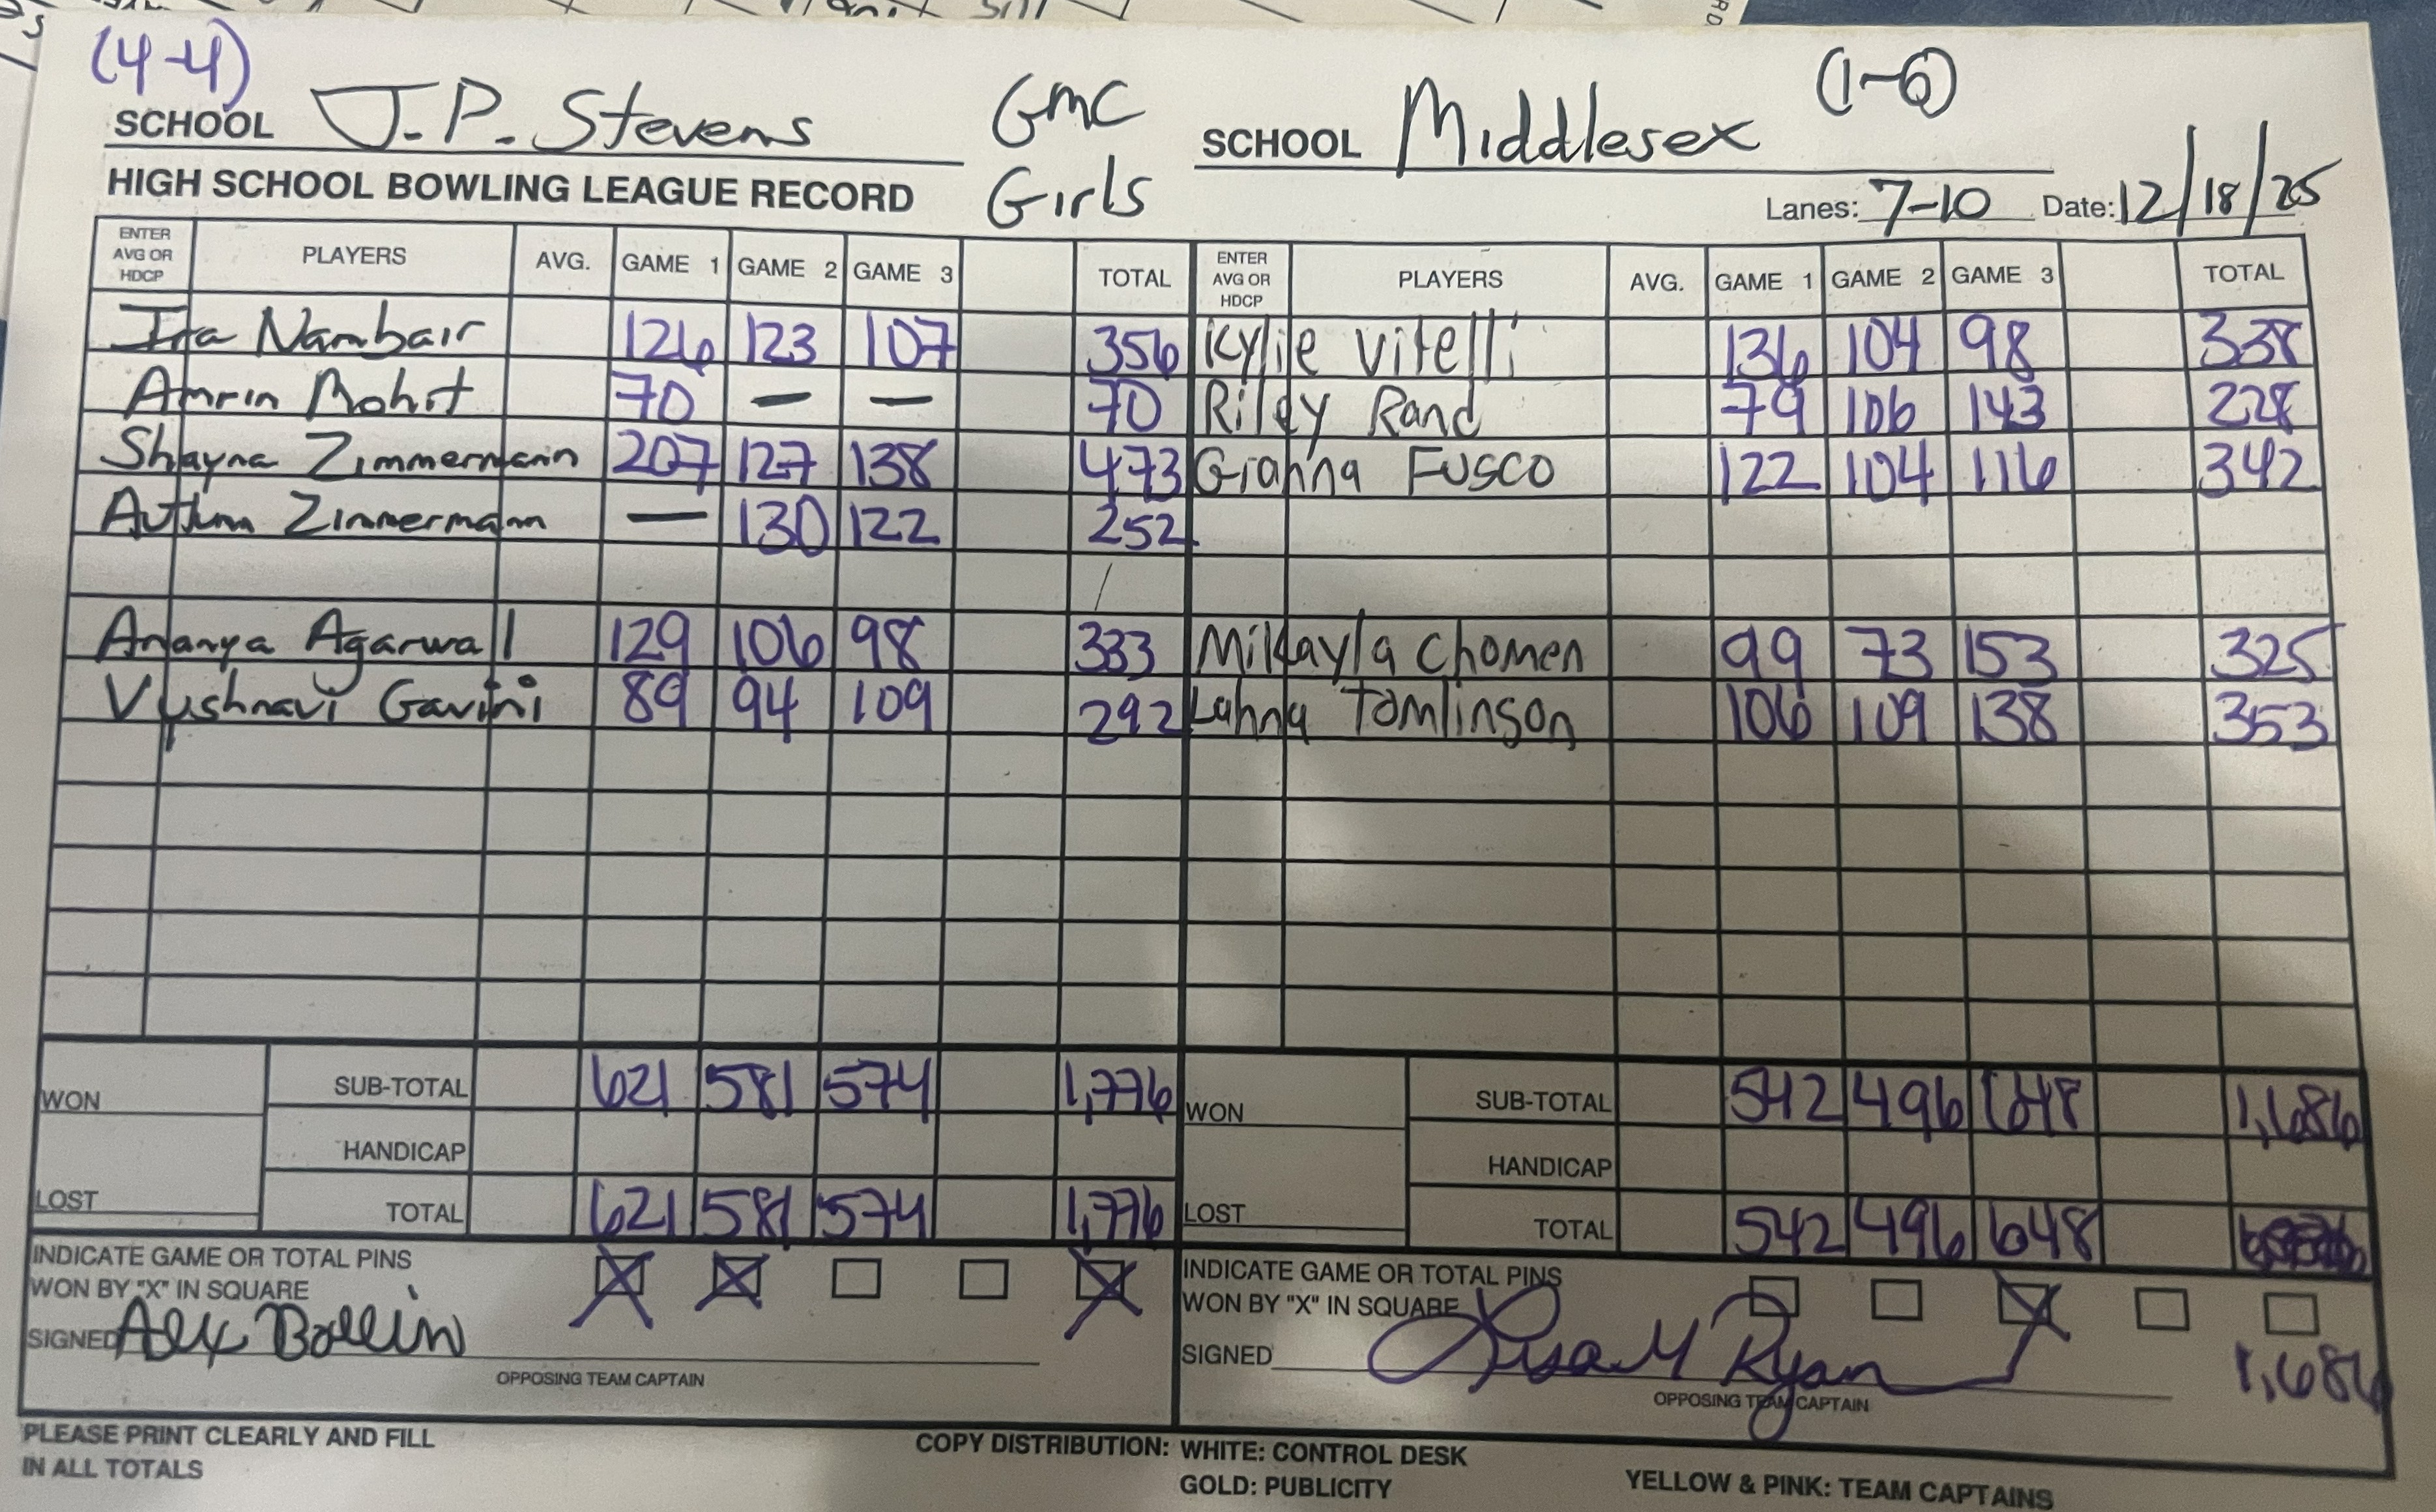 (4-4)
SCHOOL J.P. Stevens GMC SCHOOL Middlesex (1-6)
HIGH SCHOOL BOWLING LEAGUE RECORD Girls Lanes: 7-10 Date: 12/18/25
ENTER AVG OR HDCP PLAYERS AVG. GAME 1 GAME 2 GAME 3 TOTAL ENTER AVG OR HDCP PLAYERS AVG. GAME 1 GAME 2 GAME 3 TOTAL
Ira Nambair 126 123 107 356 Kylie Vitelli 136 104 98 338
Amrin Mohit 70 — — 70 Riley Rand 79 106 143 228
Shayna Zimmermann 207 127 138 473 Gianna Fusco 122 104 116 342
Autumn Zimmermann — 130 122 252
Ananya Agarwal 129 106 98 333 Mikayla Chomen 99 73 153 325
Vyshnavi Gavini 89 94 109 292 Lahna Tomlinson 106 109 138 353
WON SUB-TOTAL 621 581 574 1,776 WON SUB-TOTAL 542 496 648 1,686
HANDICAP HANDICAP
LOST TOTAL 621 581 574 1,776 LOST TOTAL 542 496 648
INDICATE GAME OR TOTAL PINS INDICATE GAME OR TOTAL PINS
WON BY "X" IN SQUARE X X X WON BY "X" IN SQUARE X
SIGNED Alex Bollin SIGNED Lisa M Ryan 1,686
OPPOSING TEAM CAPTAIN OPPOSING TEAM CAPTAIN
PLEASE PRINT CLEARLY AND FILL COPY DISTRIBUTION: WHITE: CONTROL DESK
IN ALL TOTALS GOLD: PUBLICITY YELLOW & PINK: TEAM CAPTAINS